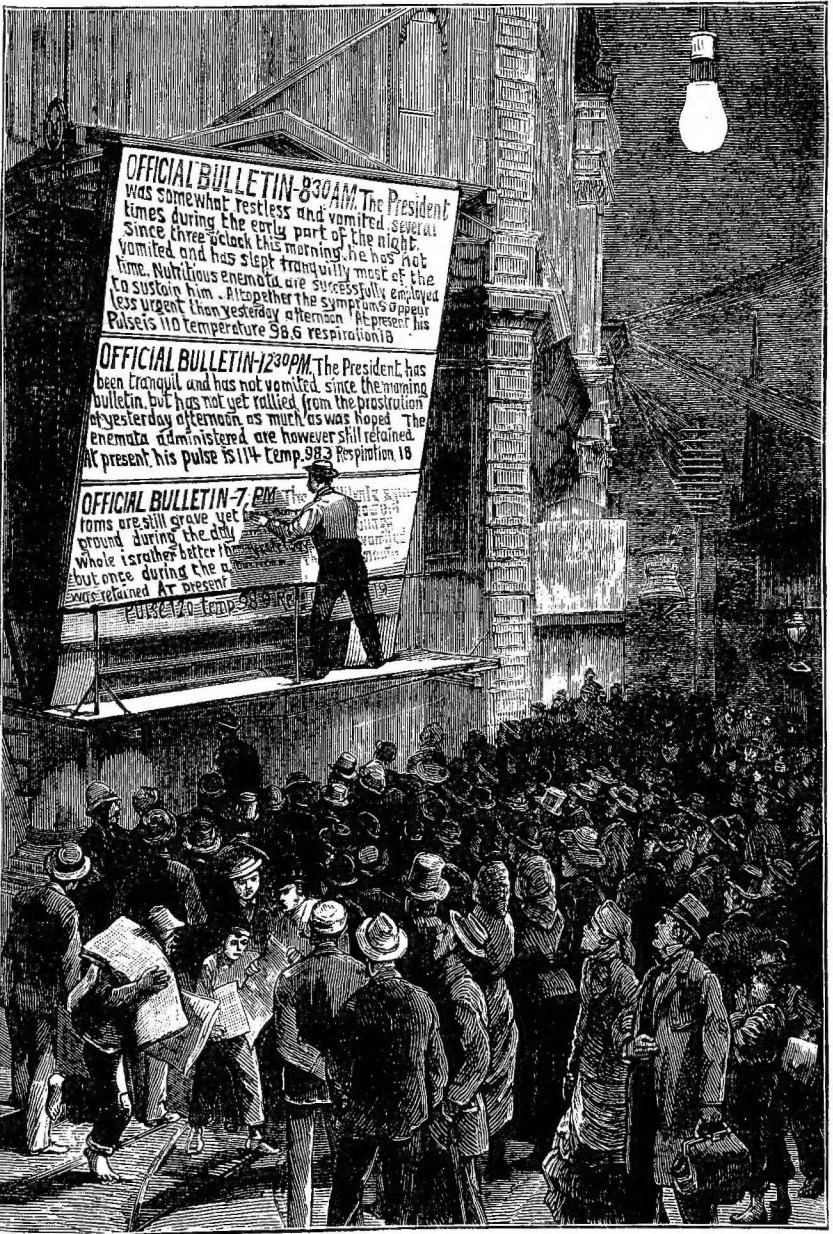 OFFICIAL BULLETIN-8 30 AM. The President
was somewhat restless and vomited several
times during the early part of the night.
Since three o'clock this morning he has not
vomited and has slept tranquilly most of the
time. Nutritious enemata are successfully employed
to sustain him. Altogether the symptoms appear
less urgent than yesterday afternoon At present his
Pulse is 110 temperature 98.6 respiration 18
OFFICIAL BULLETIN-12 30 PM. The President has
been tranquil and has not vomited since the morning
bulletin, but has not yet rallied from the prostration
of yesterday afternoon as much as was hoped The
enemata administered are however still retained
At present his pulse is 114 temp. 98.3 Respiration. 18
OFFICIAL BULLETIN-7. PM The
toms are still grave, yet
ground during the day
whole is rather better
but once during the
was retained At present
Pulse 120 temp 98.9 19